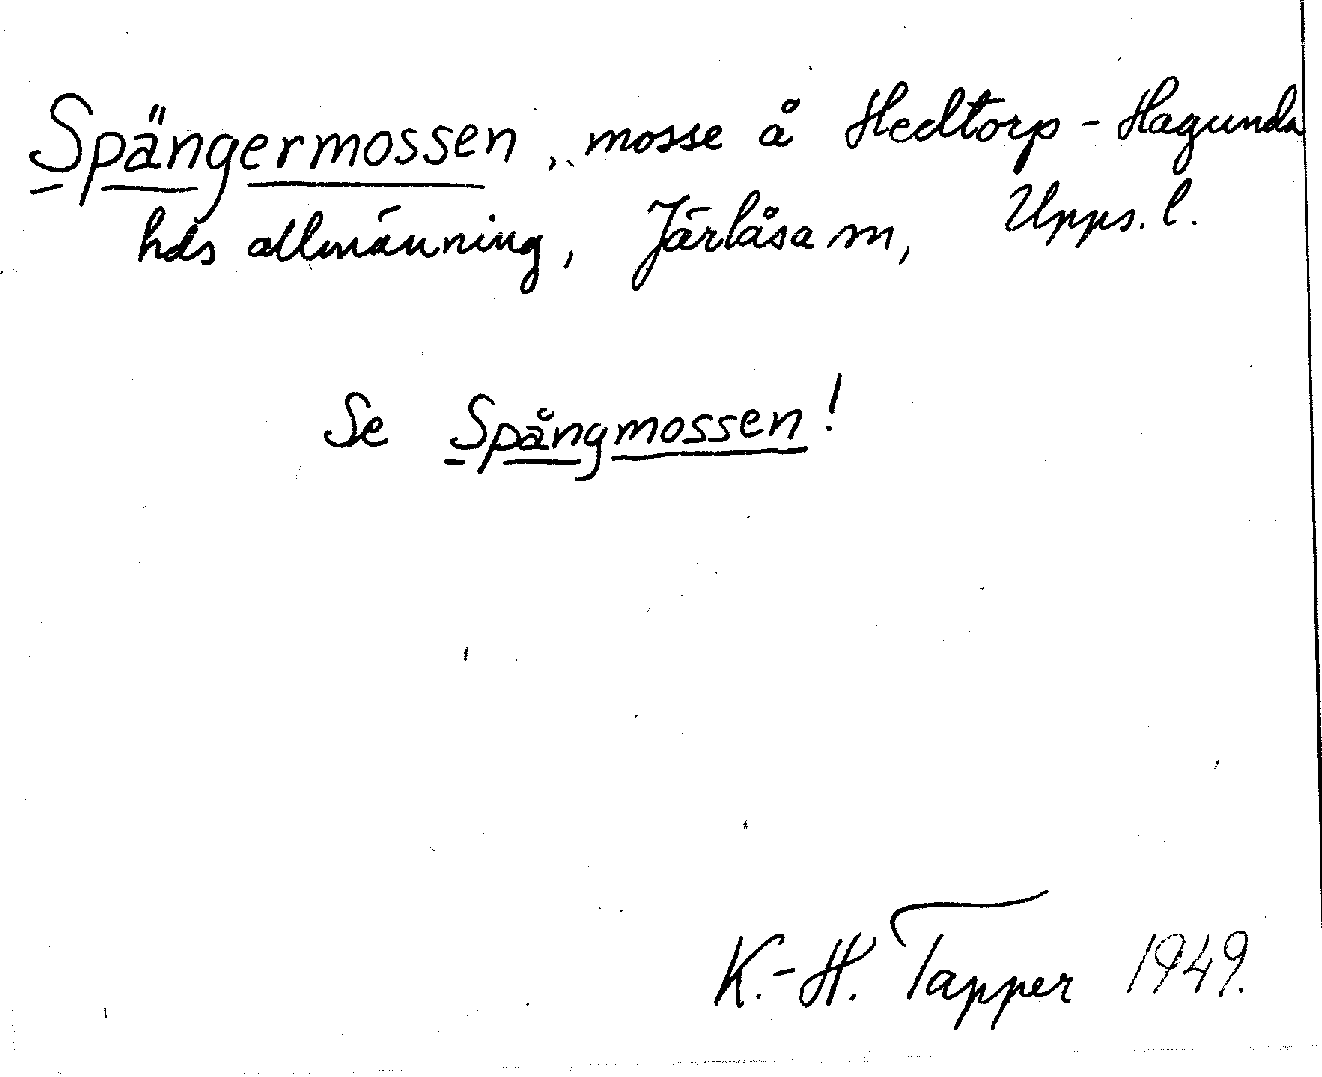 Spängermossen, mosse å Hedtorp - Hagunda
hds allmänning, Järlåsa sn, Upps. l.
Se Spångmossen!
K.-H. Tapper 1949.